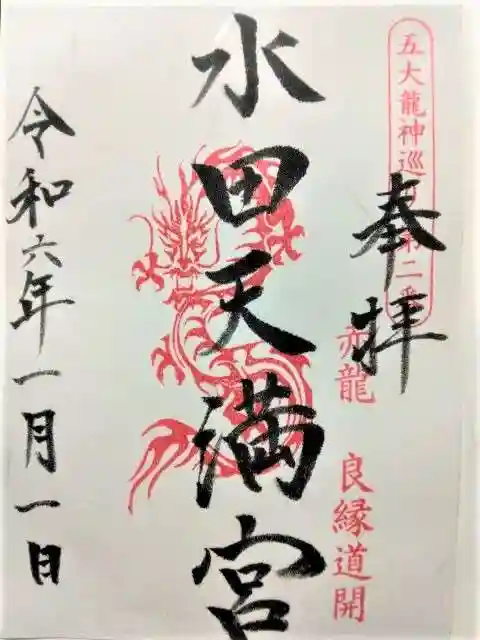 五大龍神巡
第二番
奉拝
赤龍
良縁道開
水田天満宮
令和六年一月一日